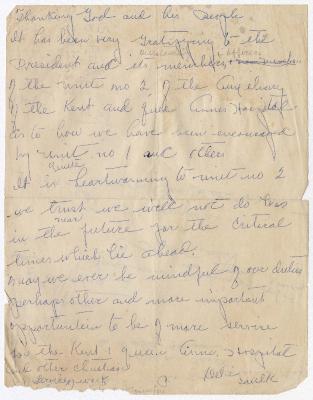 Thanking God and his people.
It has been very gratifying to the
officers
President and its members
of the unit no 2 of the Auxiliary
of the Kent and Queen Annes Hospital
as to how we have been encouraged
by unit no 1 and others
quite
It is heartwarming to unit no 2
we trust we will not do less
near
in the future for the critical
times which lie ahead.
may we ever be mindful of our duties
perhaps other and more important
opportunities to be of more service
to the Kent & Queen Anne, Hospital
and other christian
service work